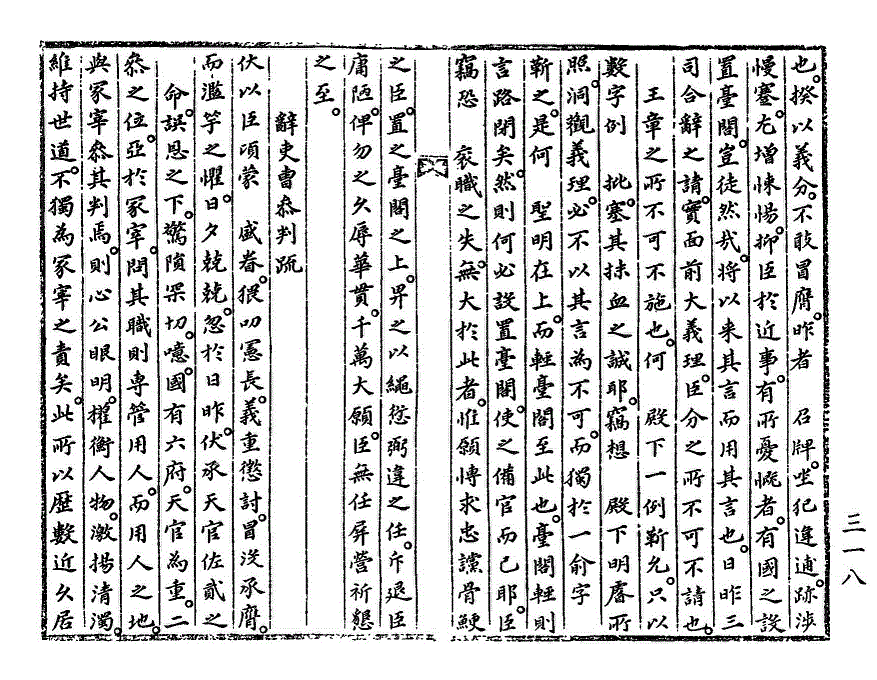 也。揆以義分。不敢冒膺。昨者 召牌。坐犯違逋。跡涉
慢蹇。尤增悚惕。抑臣於近事。有所憂慨者。有國之設
置臺閣。豈徒然哉。將以來其言而用其言也。日昨三
司合辭之請。實面前大義理。臣分之所不可不請也。
王章之所不可不施也。何 殿下一例靳允。只以
數字例 批。塞其抹血之誠耶。竊想 殿下明睿所
照。洞觀義理。必不以其言爲不可。而獨於一兪字
靳之。是何 聖明在上。而輕臺閣至此也。臺閣輕則
言路閉矣。然則何必設置臺閣。使之備官而已耶。臣
竊恐 袞職之失。無大於此者。惟願博求忠讜骨鯁
之臣。置之臺閣之上。畀之以繩愆弼違之任。斥退臣
庸陋。俾勿之久辱華貫。千萬大願。臣無任屛營祈懇
之至。
辭吏曹參判疏
伏以臣頃蒙 盛眷。猥叨憲長。義重懲討。冒沒承膺。
而濫竽之懼。日夕兢兢。忽於日昨。伏承天官佐貳之
命。誤恩之下。驚隕罙切。噫。國有六府。天官爲重。二
參之位。亞於冢宰。問其職則專管用人。而用人之地。
與冢宰參其判焉。則心公眼明。權衡人物。激揚清濁。
維持世道。不獨爲冢宰之責矣。此所以歷數近久居
三一八